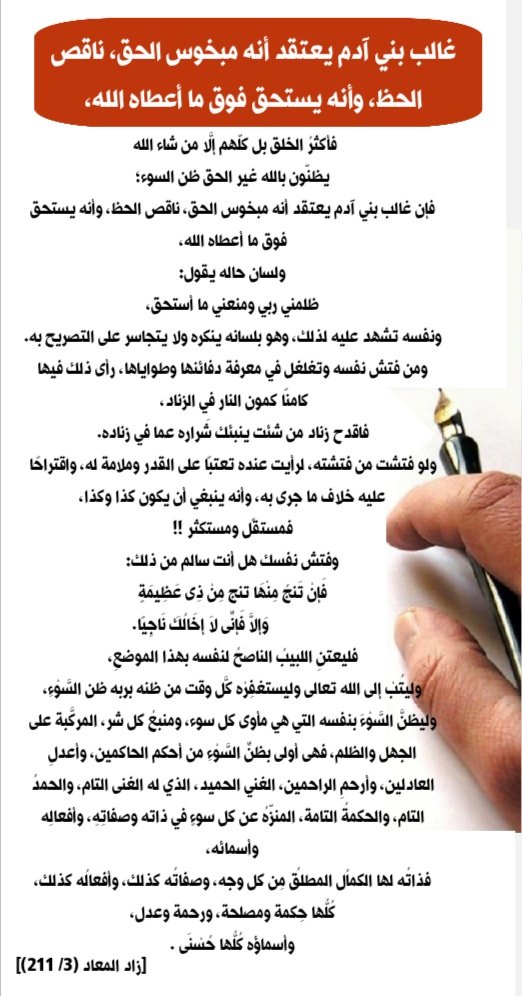 غالب بني آدم يعتقد أنه مبخوس الحق، ناقص
الحظ، وأنه يستحق فوق ما أعطاه الله،
فأكثرُ الخلق بل كلّهم إلَّا من شاء الله
يظنّون بالله غير الحق ظن السوء؛
فإن غالب بني آدم يعتقد أنه مبخوس الحق، ناقص الحظ، وأنه يستحق
فوق ما أعطاه الله،
ولسان حاله يقول:
ظلمني ربي ومنعني ما أستحق،
ونفسه تشهد عليه لذلك، وهو بلسانه ينكره ولا يتجاسر على التصريح به.
ومن فتش نفسه وتغلغل في معرفة دفائنها وطواياها، رأى ذلك فيها
كامنًا كمون النار في الزناد،
فاقدح زناد من شئت ينبئك شَراره عما في زناده.
ولو فتشت من فتشته، لرأيت عنده تعتبًا على القدر وملامة له، واقتراحًا
عليه خلاف ما جرى به، وأنه ينبغي أن يكون كذا وكذا،
فمستقلّ ومستكثر !!
وفتش نفسك هل أنت سالم من ذلك:
فَإنْ تَنجُ مِنْهَا تنج مِنْ ذِى عَظِيمَةٍ
وَإلاَّ فَإنِّى لاَ إخَالُكَ نَاجِيًا.
فليعتنِ اللبيبُ الناصحُ لنفسه بهذا الموضعِ،
وليتُبْ إلى الله تعالى وليستغفِرْه كَّل وقت من ظنه بربه ظن السَّوْءِ،
وليظنَّ السَّوْءَ بنفسه التي هي مأوى كل سوء، ومنبعُ كل شر، المركَّبة على
الجهل والظلم، فهى أولى بظنِّ السَّوْءِ من أحكم الحاكمين، وأعدلِ
العادلين، وأرحمِ الراحمين، الغني الحميد، الذي له الغنى التام، والحمدُ
التام، والحكمةُ التامة، المنزّهُ عن كل سوءٍ في ذاته وصفاتِهِ، وأفعالِه
وأسمائه،
فذاتُه لها الكمالُ المطلقُ مِن كل وجه، وصفاتُه كذلك، وأفعالُه كذلك،
كُلُّها حِكمة ومصلحة، ورحمة وعدل،
وأسماؤه كُلُّها حُسْنَى .
[زاد المعاد (3/ 211)]